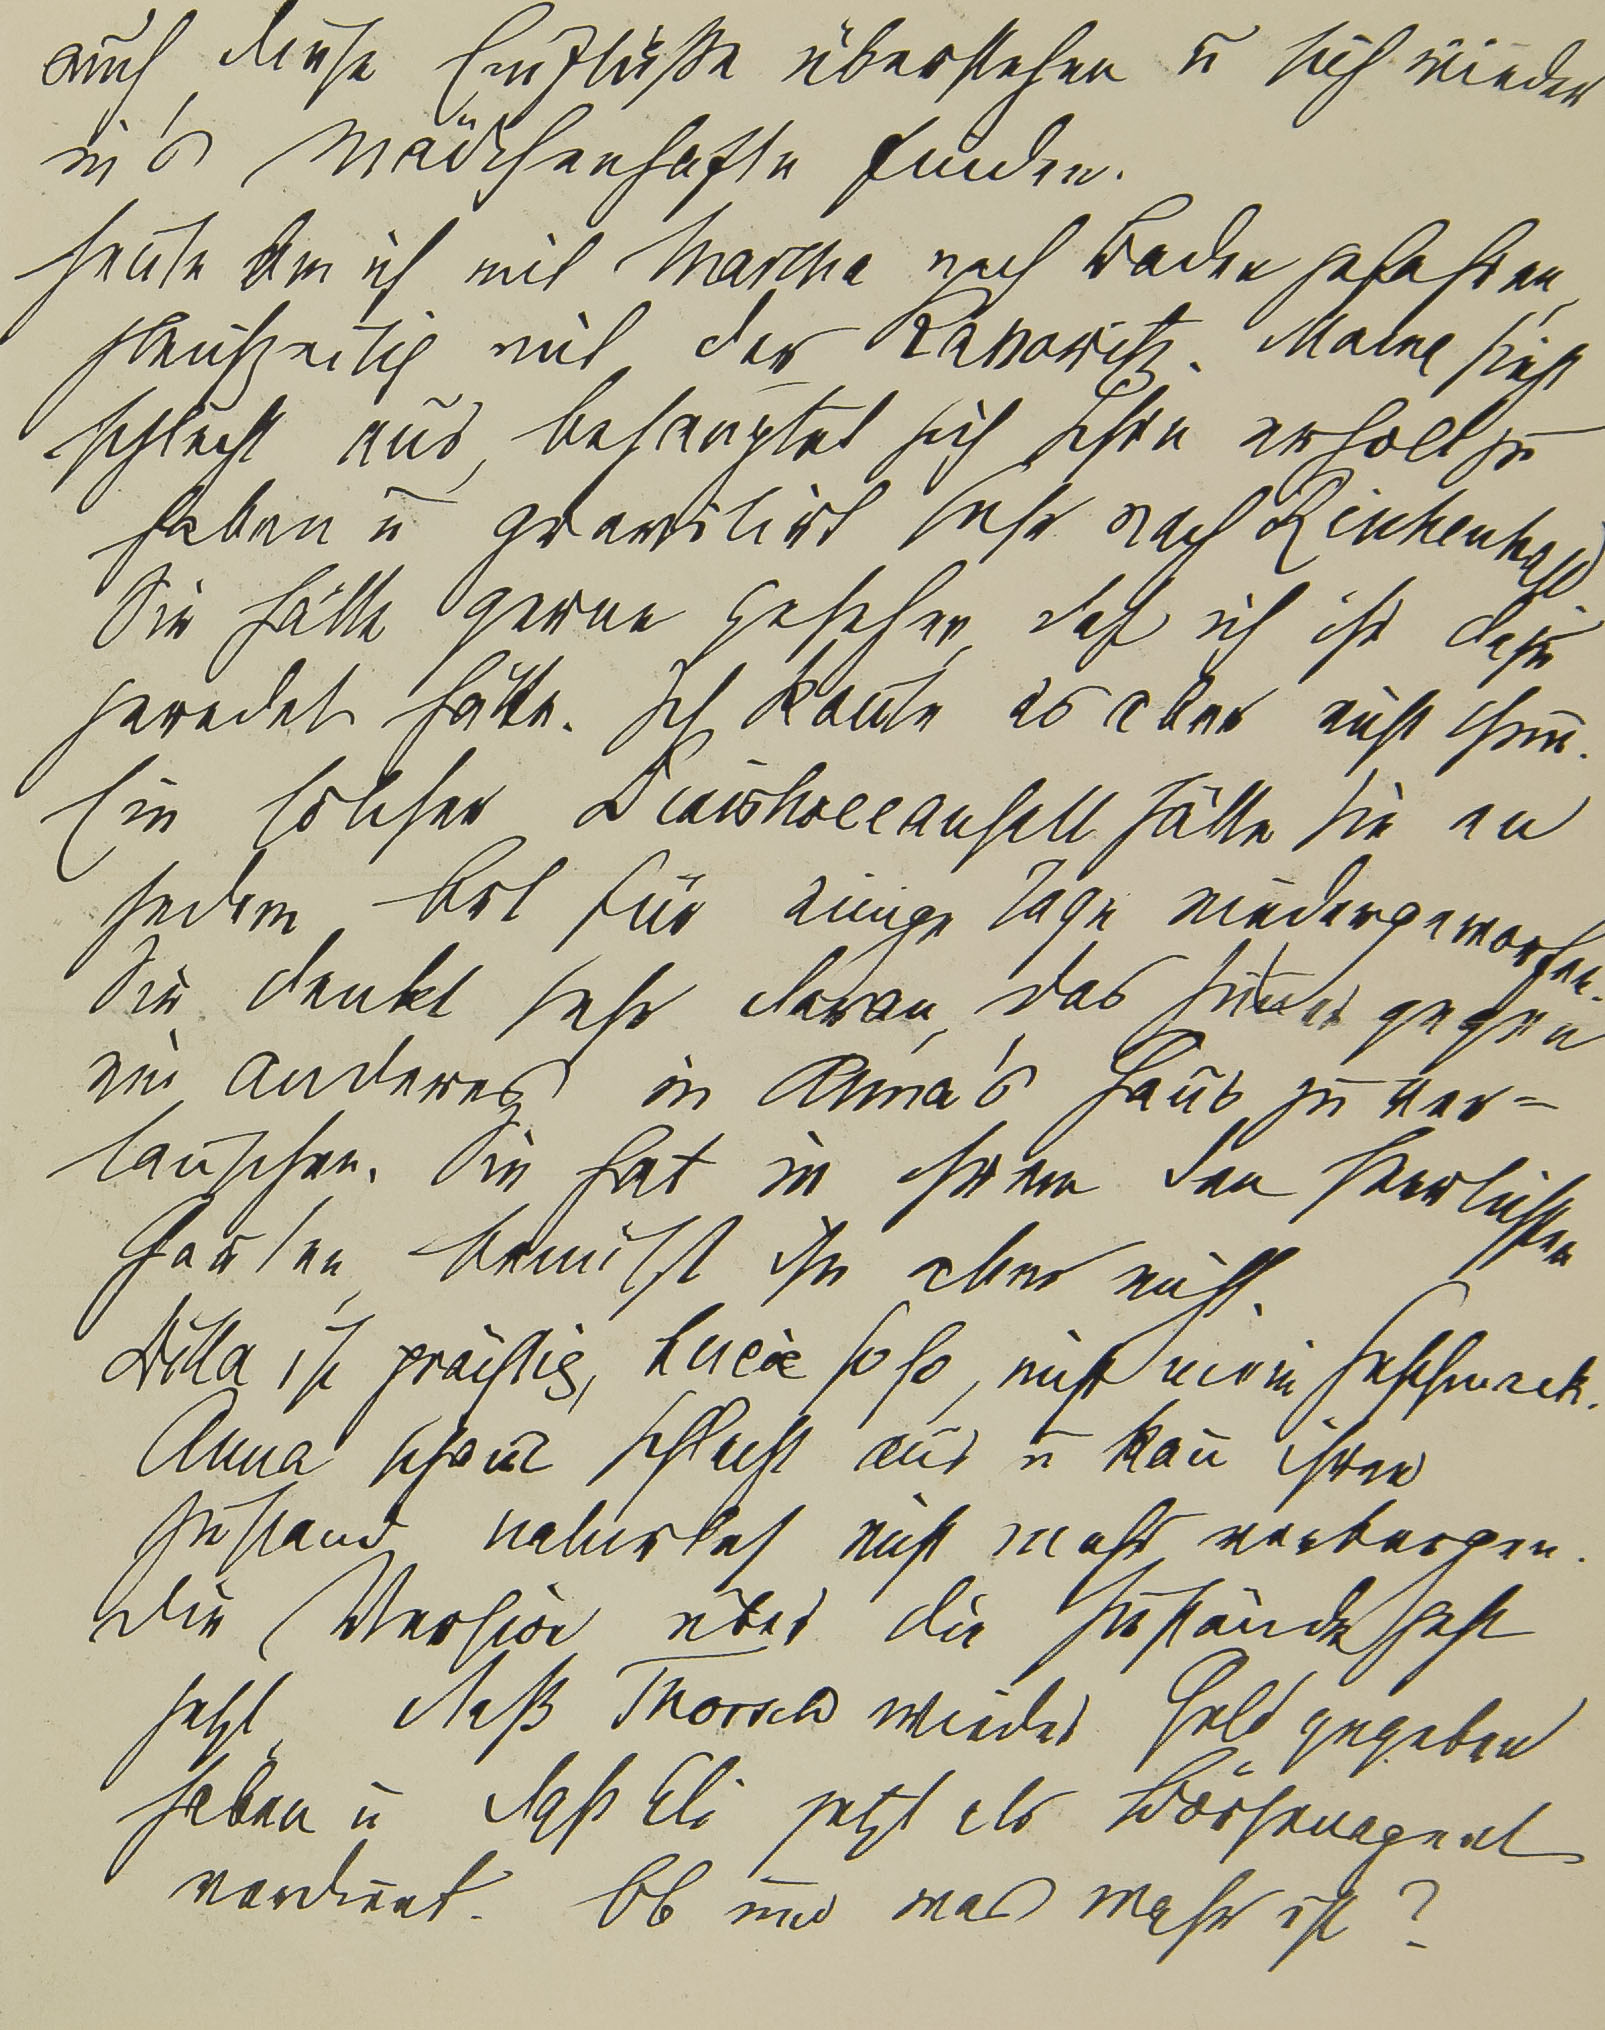 auch diese Einflüße überstehen u sich wieder
in's Mädchenhafte finden.
Heute bin ich mit Martha nach Baden gefahren,
gleichzeitig mit der Kanowitz. Mama sieht
schlecht aus, behauptet sich schon erholt zu
haben u gravitirt sehr nach Reichenhall
Sie hätte gerne gesehen, daß ich ihr dazu
geredet hätte. Ich konte es aber nicht thun.
Ein solcher Anfall hätte sie an
jedem Ort für einige Tage niedergeworfen.
Sie denkt sehr daran, das Zimer gegen
ein anderes in Anna's Haus zu ver=
tauschen. Sie hat in ihrem den herrlichsten
Garten, benützt ihn aber nicht.
Ditta ist prächtig, Lucie so so, nicht mein Geschmack.
Anna schaut schlecht aus u kañ ihren
Zustand naturlich nicht mehr verbergen.
Die Version über die Zustände geht
jetzt, daß Thorsch wieder Geld gegeben
haben u daß Eli jetzt als Börsenagent
verdient. Ob und was wahr ist?